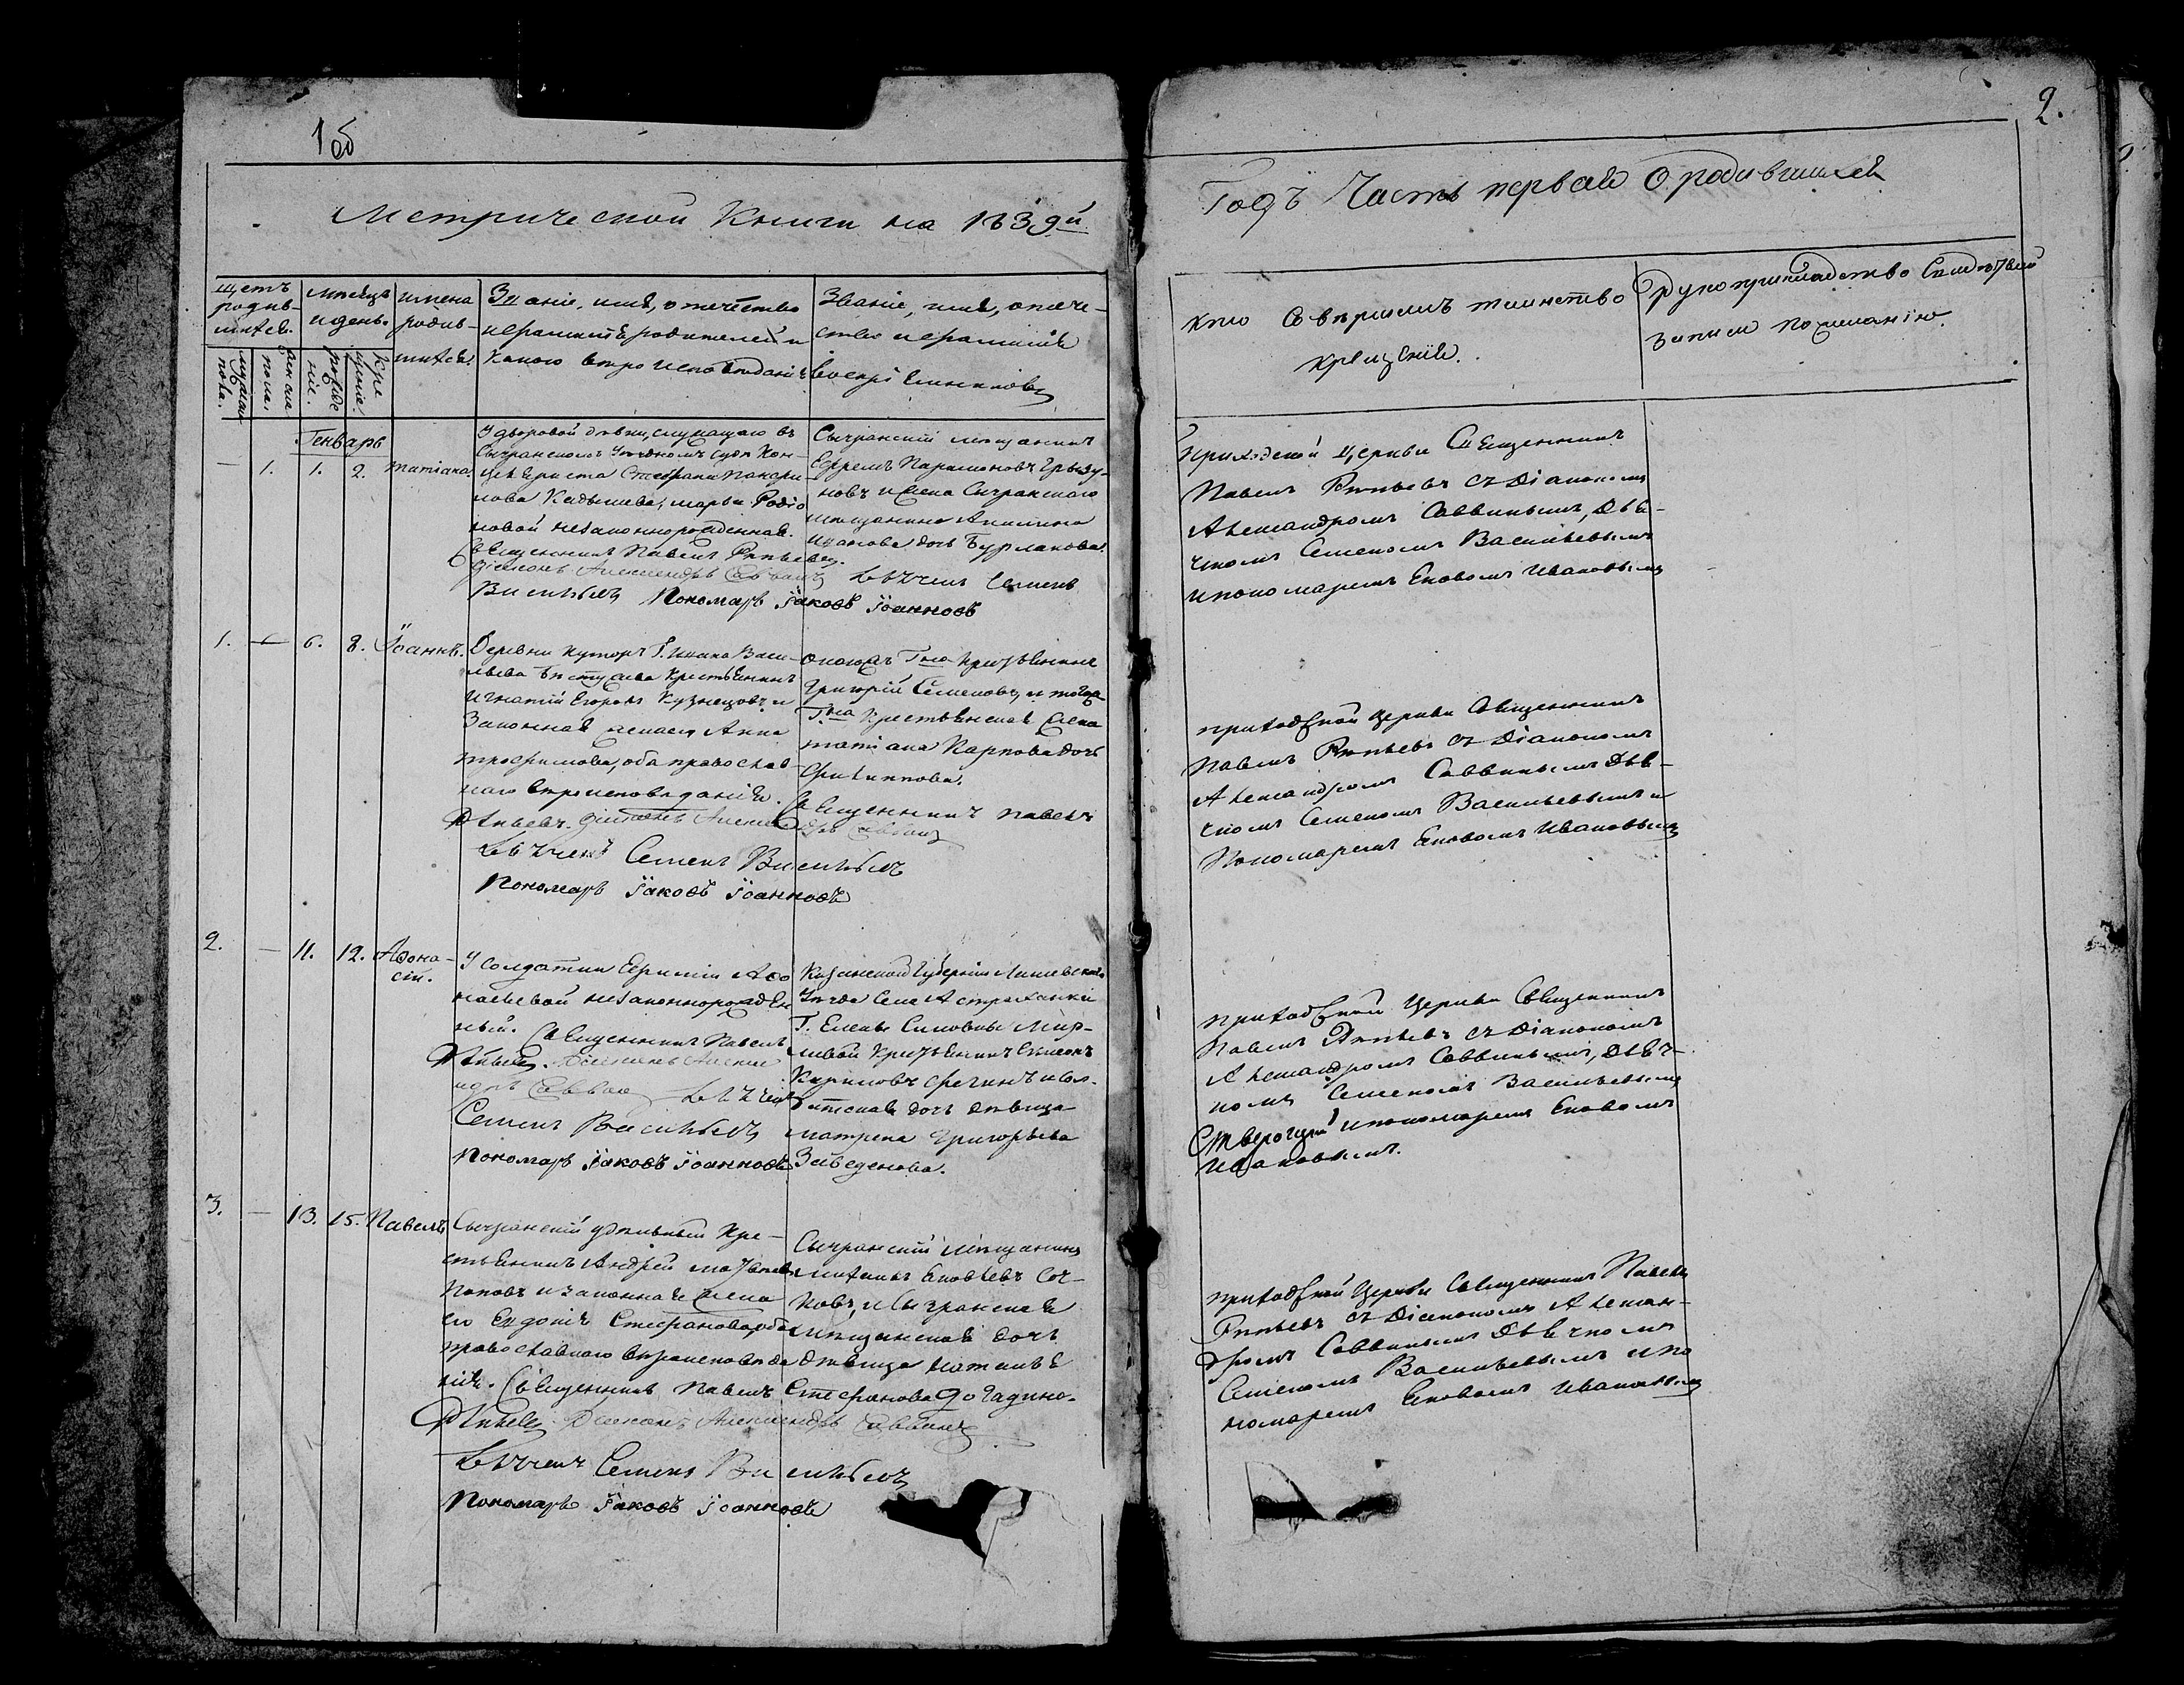 1об
2.
Метрической книги на 1839й
Годъ Часть первая о родившихся
Щетъ
родив-
шихся.
Мѣсяцъ
и день.
имена
родив-
шихся.
Званіе, имя, отечество
и фамилія родителей и
какого вѣроисповѣданія
Званіе, имя, отече-
ство и фамилія
воспріемниковъ
Кто совершалъ таинство
крещенія.
Рукоприкладство свидѣтелей
записи по желанію.
мужска
пола.
женска
пола.
рожде
нія.
кре
щенія.
Генварь
— 1. 1. 2. Татіана.
У дворовой дѣвки, служащаго въ
Сызранскомъ Уѣздномъ судѣ Кан-
целяриста Стефана
Кадышева, Марѳы Родіо
новой незаконнорожденная.
Священникъ Павелъ
Діаконъ Александръ Саввинъ Дьячекъ Семенъ
Васильевъ Пономарь Іаковъ Іоанновъ
Сызранскій мѣщанинъ
Ефремъ Парамоновъ Грызу-
новъ и жена Сызранскаго
мѣщанина
Иванова дочь Бурлакова.
Приходской церкви Священникъ
Павелъ съ Діакономъ
Александромъ Саввинымъ, Дья-
чкомъ Семеномъ Васильевымъ
и пономаремъ Яковомъ Ивановымъ
1. — 6. 8. Іоаннъ.
Деревни Хуторъ Г. Ивана Васи-
льева Бѣстужева крестьянинъ
Игнатій Егоровъ Кузнецовъ и
Законная жена его Анна
Трофимова, оба православ-
наго вѣроисповѣданія.
Священникъ Павелъ
Діаконъ Алексан
дръ Саввинъ
Дьячекъ Семенъ Васильевъ
Пономарь Іаковъ Іоанновъ
онагожъ Гна крестьянинъ
Григорій Семеновъ, и тогожъ
Гна крестьянская жена
Татіана Карпова дочь
Филиппова.
приходской церкви Священникъ
Павелъ съ Діакономъ
Александромъ Саввинымъ Дья-
чкомъ Семеномъ Васильевымъ и
Пономаремъ Яковомъ Ивановымъ
2. — 11. 12. Аѳона-
сій.
У солдатки Евфиміи Аѳо
насьевой незаконнорожден
ный. Священникъ Павелъ
Діаконъ Алексан
дръ Саввинъ Дьячекъ
Семенъ Васильевъ
Пономарь Іаковъ Іоанновъ
Казанской Губерніи Лаишевскаго
Уѣзда Села Астраханки
Г. Елены
крестьянинъ Симеонъ
Кириловъ и сол-
датская дочь дѣвица
Матрена Григорьева
приходской церкви Священникъ
Павелъ съ Діакономъ
Александромъ Саввинымъ, Дьяч-
комъ Семеномъ Васильевымъ
и пономаремъ Яковомъ
Ивановымъ.
3. — 13. 15. Павелъ
Сызранскій удѣльный кре-
стьянинъ Андрей Матвѣевъ
Поповъ и законная жена
его Евдокія Стефанова, оба
православнаго вѣроисповѣда
нія. Священникъ Павелъ
Діаконъ Александръ Саввинъ
Дьячекъ Семенъ Васильевъ
Пономарь Іаковъ Іоанновъ
Сызранскій мѣщанинъ
Михаилъ Яковлевъ
и Сызранская
мѣщанская дочь
дѣвица Наталья
Стефанова
приходской церкви Священникъ Павелъ
съ Діакономъ Алексан-
дромъ Саввинымъ Дьячкомъ
Семеномъ Васильевымъ и по
номаремъ Яковомъ Ивановымъ